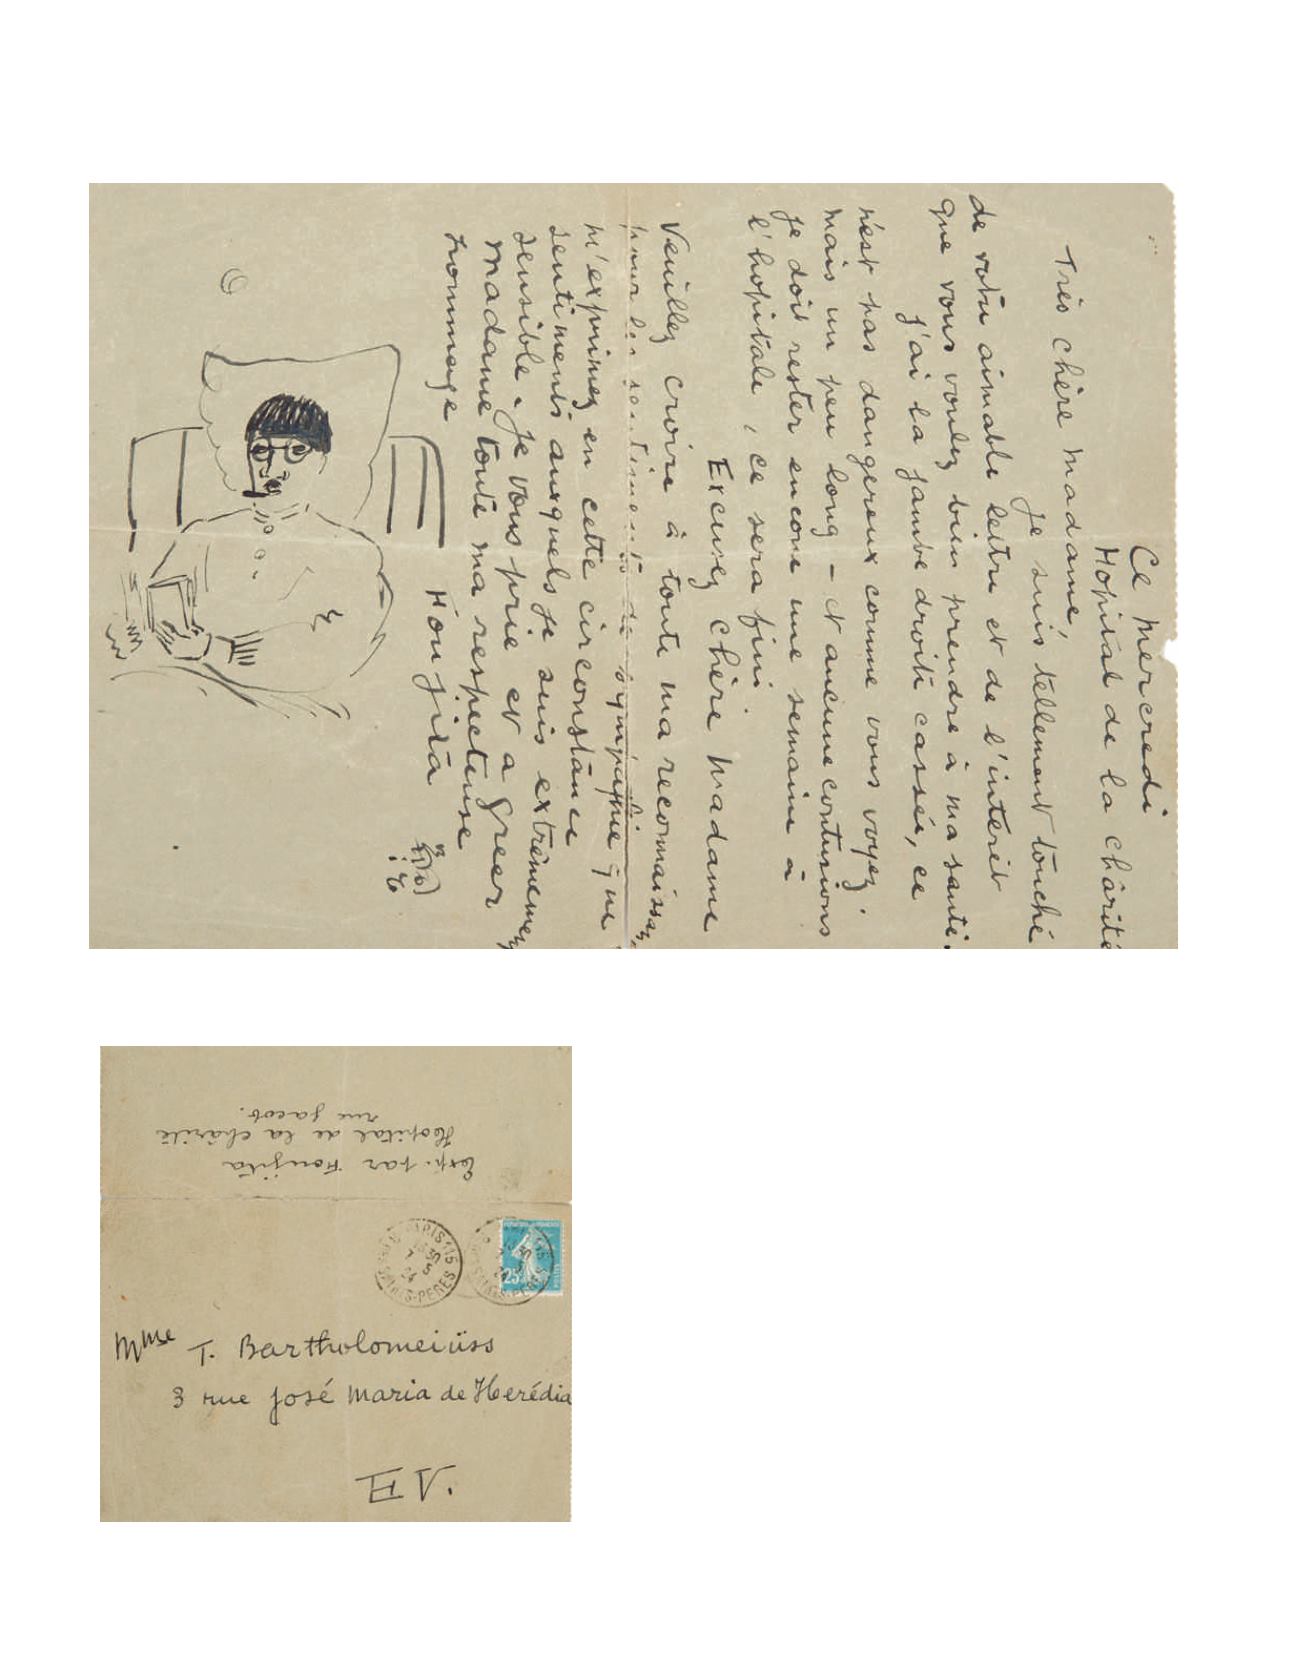 Ce mercredi
Hopital de la chârité
Très chère madame,
Je suis tellement touché
de votre aimable lettre et de l'interêt
que vous voulez bien prendre à ma santé.
j'ai la jambe droite cassée, ce
n'est pas dangereux comme vous voyez.
mais un peu long - et aucune contusions
je doit rester encore une semaine à
l'hopitale, ce sera fini.
Excusez chère madame
Veuillez croire à toute ma reconnaissan
pour les sentiments de sympathie que
m'exprimez en cette circonstance
sentiments auxquels je suis extrêmement
sensible. Je vous prie et a Greer
madame toute ma respectueuse
hommage
Foujita
Exp. par Foujita
Hopital de la chârité
rue Jacob.
PARIS 115
7 5
24
STS-PERES
25c
Mme T. Bartholomeiüss
3 rue José Maria de Herédia
E.V.